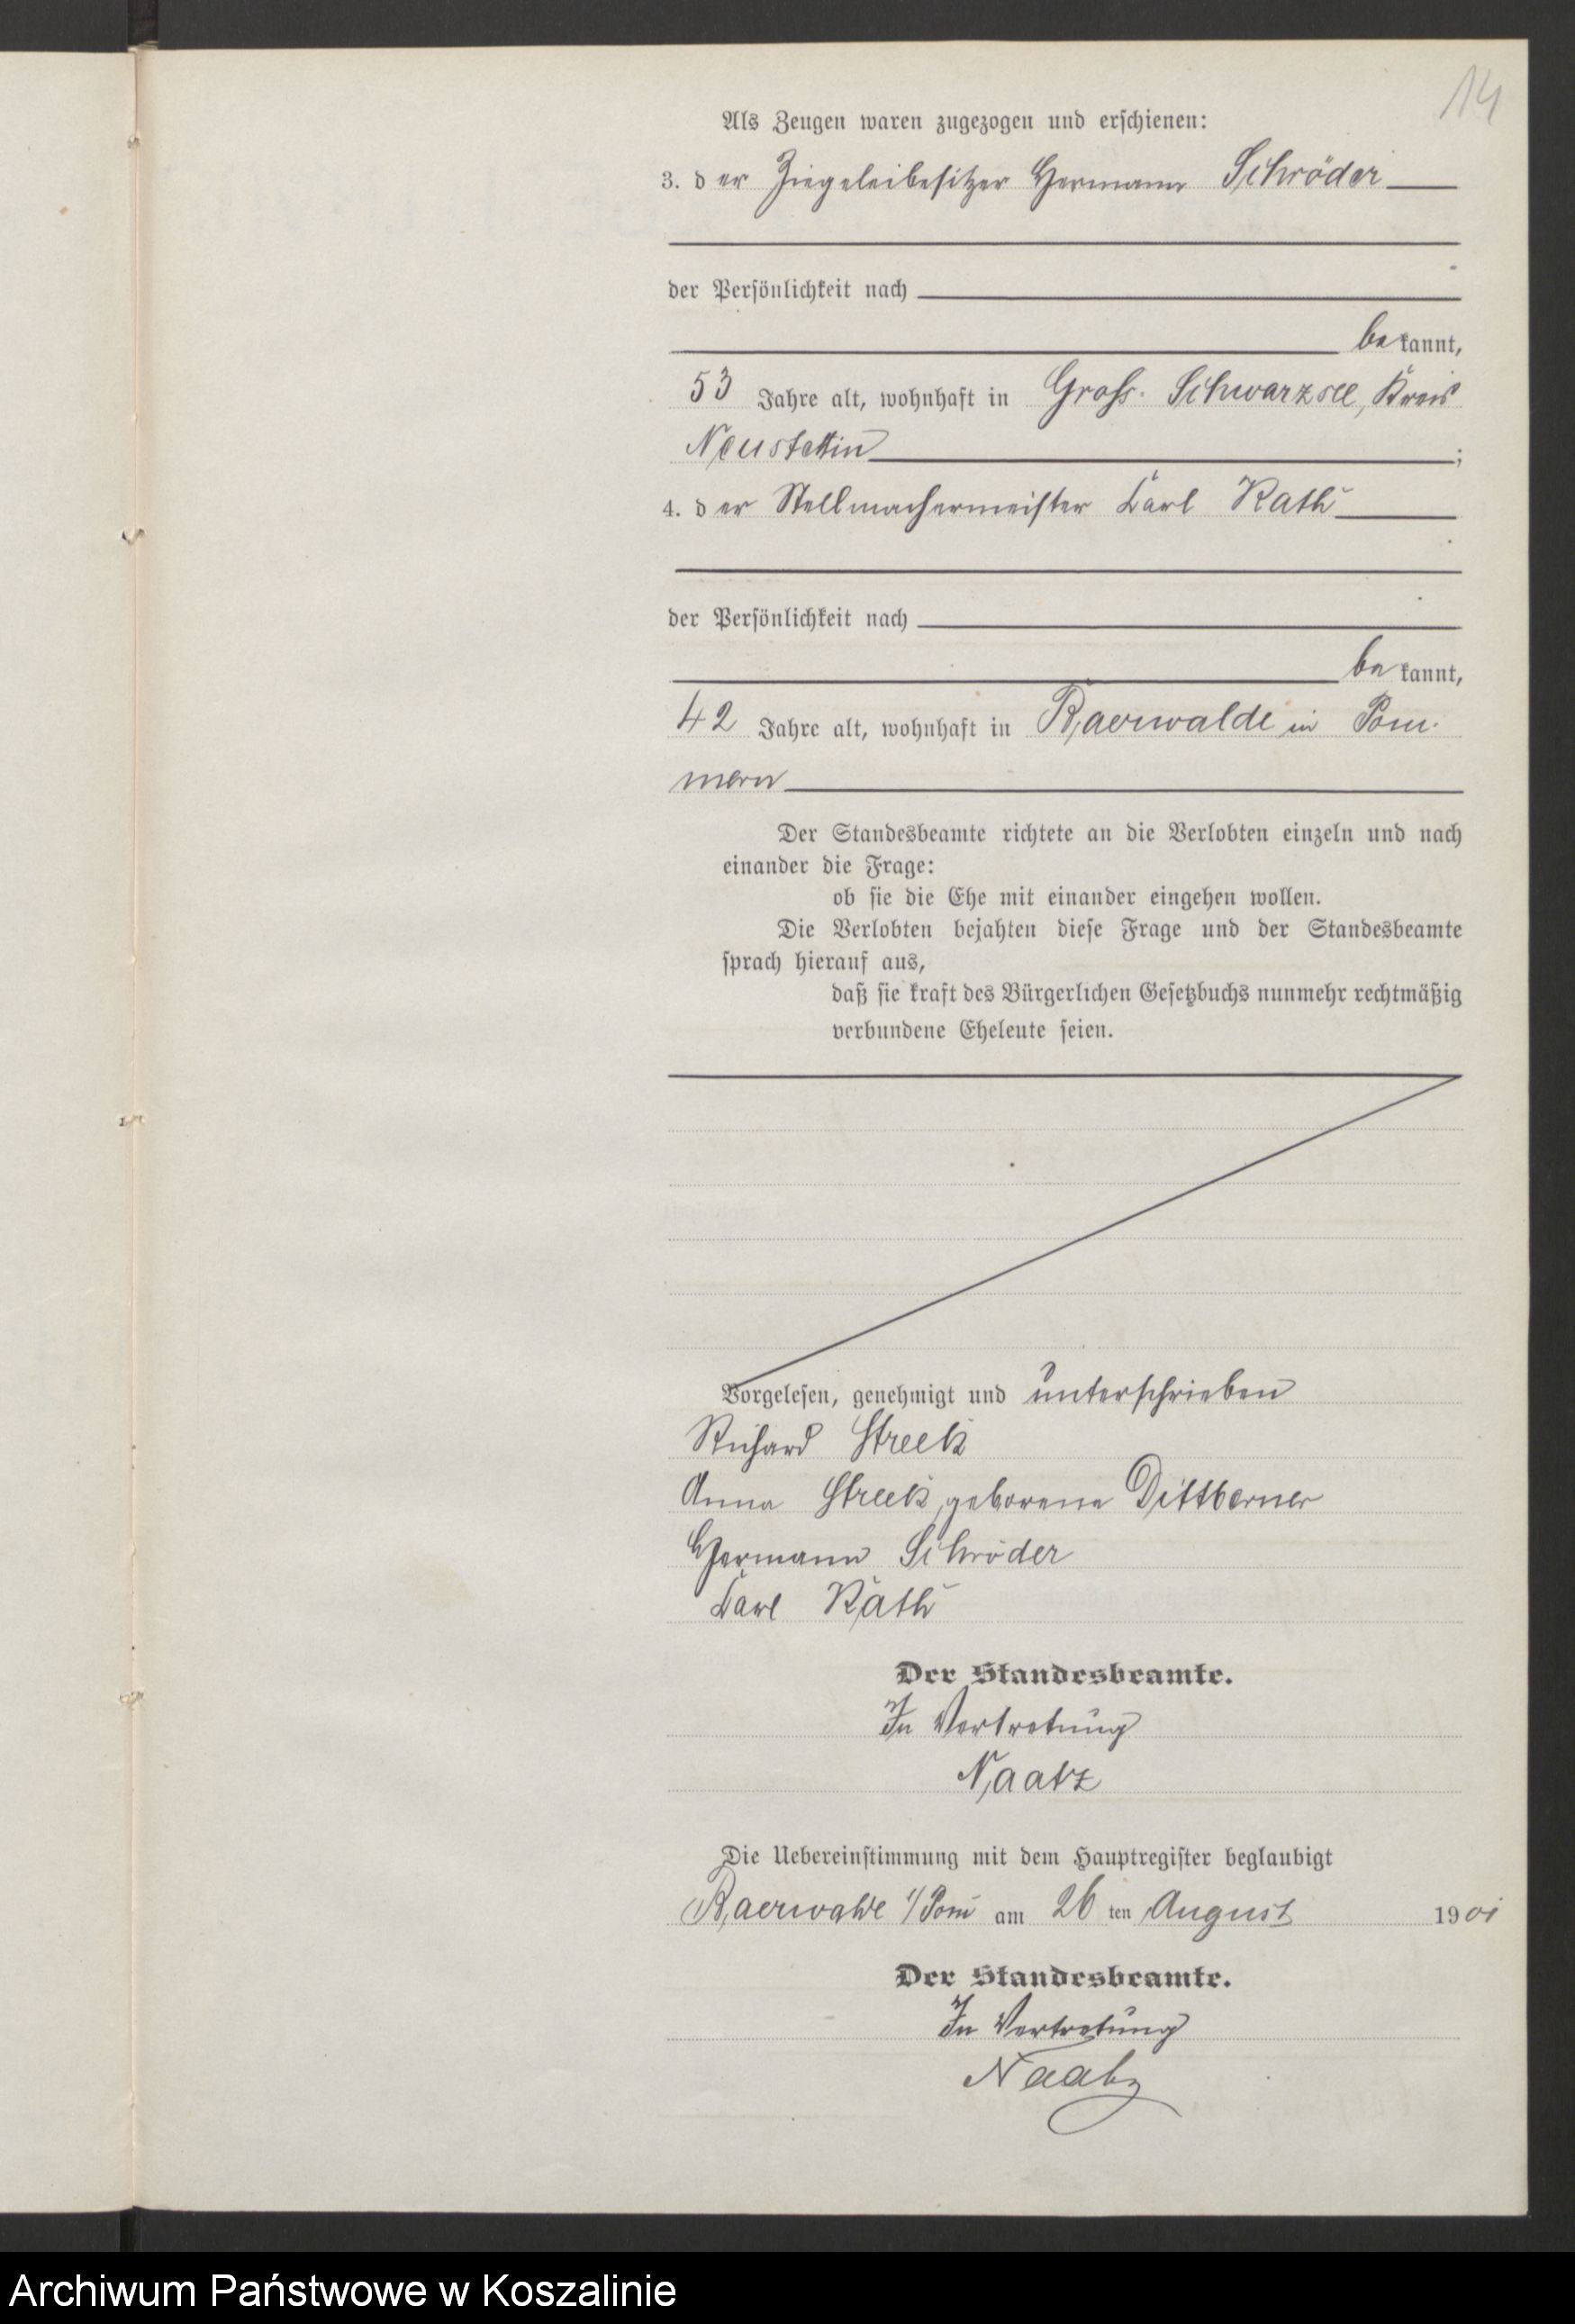 14
Als Zeugen waren zugezogen und erschienen:
3. der Ziegeleibesitzer Hermann Schröder
der Persönlichkeit nach
bekannt,
53 Jahre alt, wohnhaft in Gross-Schwarzsee, Kreis
Neustettin;
4. der Stellmachermeister Carl Rath
der Persönlichkeit nach
bekannt,
42 Jahre alt, wohnhaft in Baerwalde in Pom-
mern
Der Standesbeamte richtete an die Verlobten einzeln und nach
einander die Frage:
ob sie die Ehe mit einander eingehen wollen.
Die Verlobten bejahten diese Frage und der Standesbeamte
sprach hierauf aus,
daß sie kraft des Bürgerlichen Gesetzbuchs nunmehr rechtmäßig
verbundene Eheleute seien.
Vorgelesen, genehmigt und unterschrieben
Richard Streek
Anna Streek, geborene Dittberner
Hermann Schröder
Carl Rath
Der Standesbeamte.
In Vertretung
Naatz
Die Uebereinstimmung mit dem Hauptregister beglaubigt
Baerwalde i/Pom am 26ten August 1901
Der Standesbeamte.
In Vertretung
Naatz
Archiwum Państwowe w Koszalinie